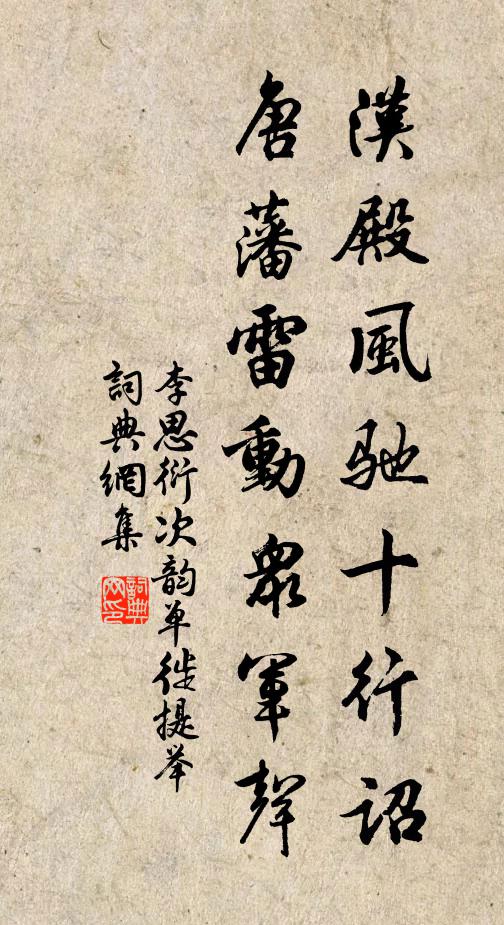 漢殿風馳十行詔
唐藩雷動衆軍聲
李思衍次韵单徙提举
詞典網集
詞典網印